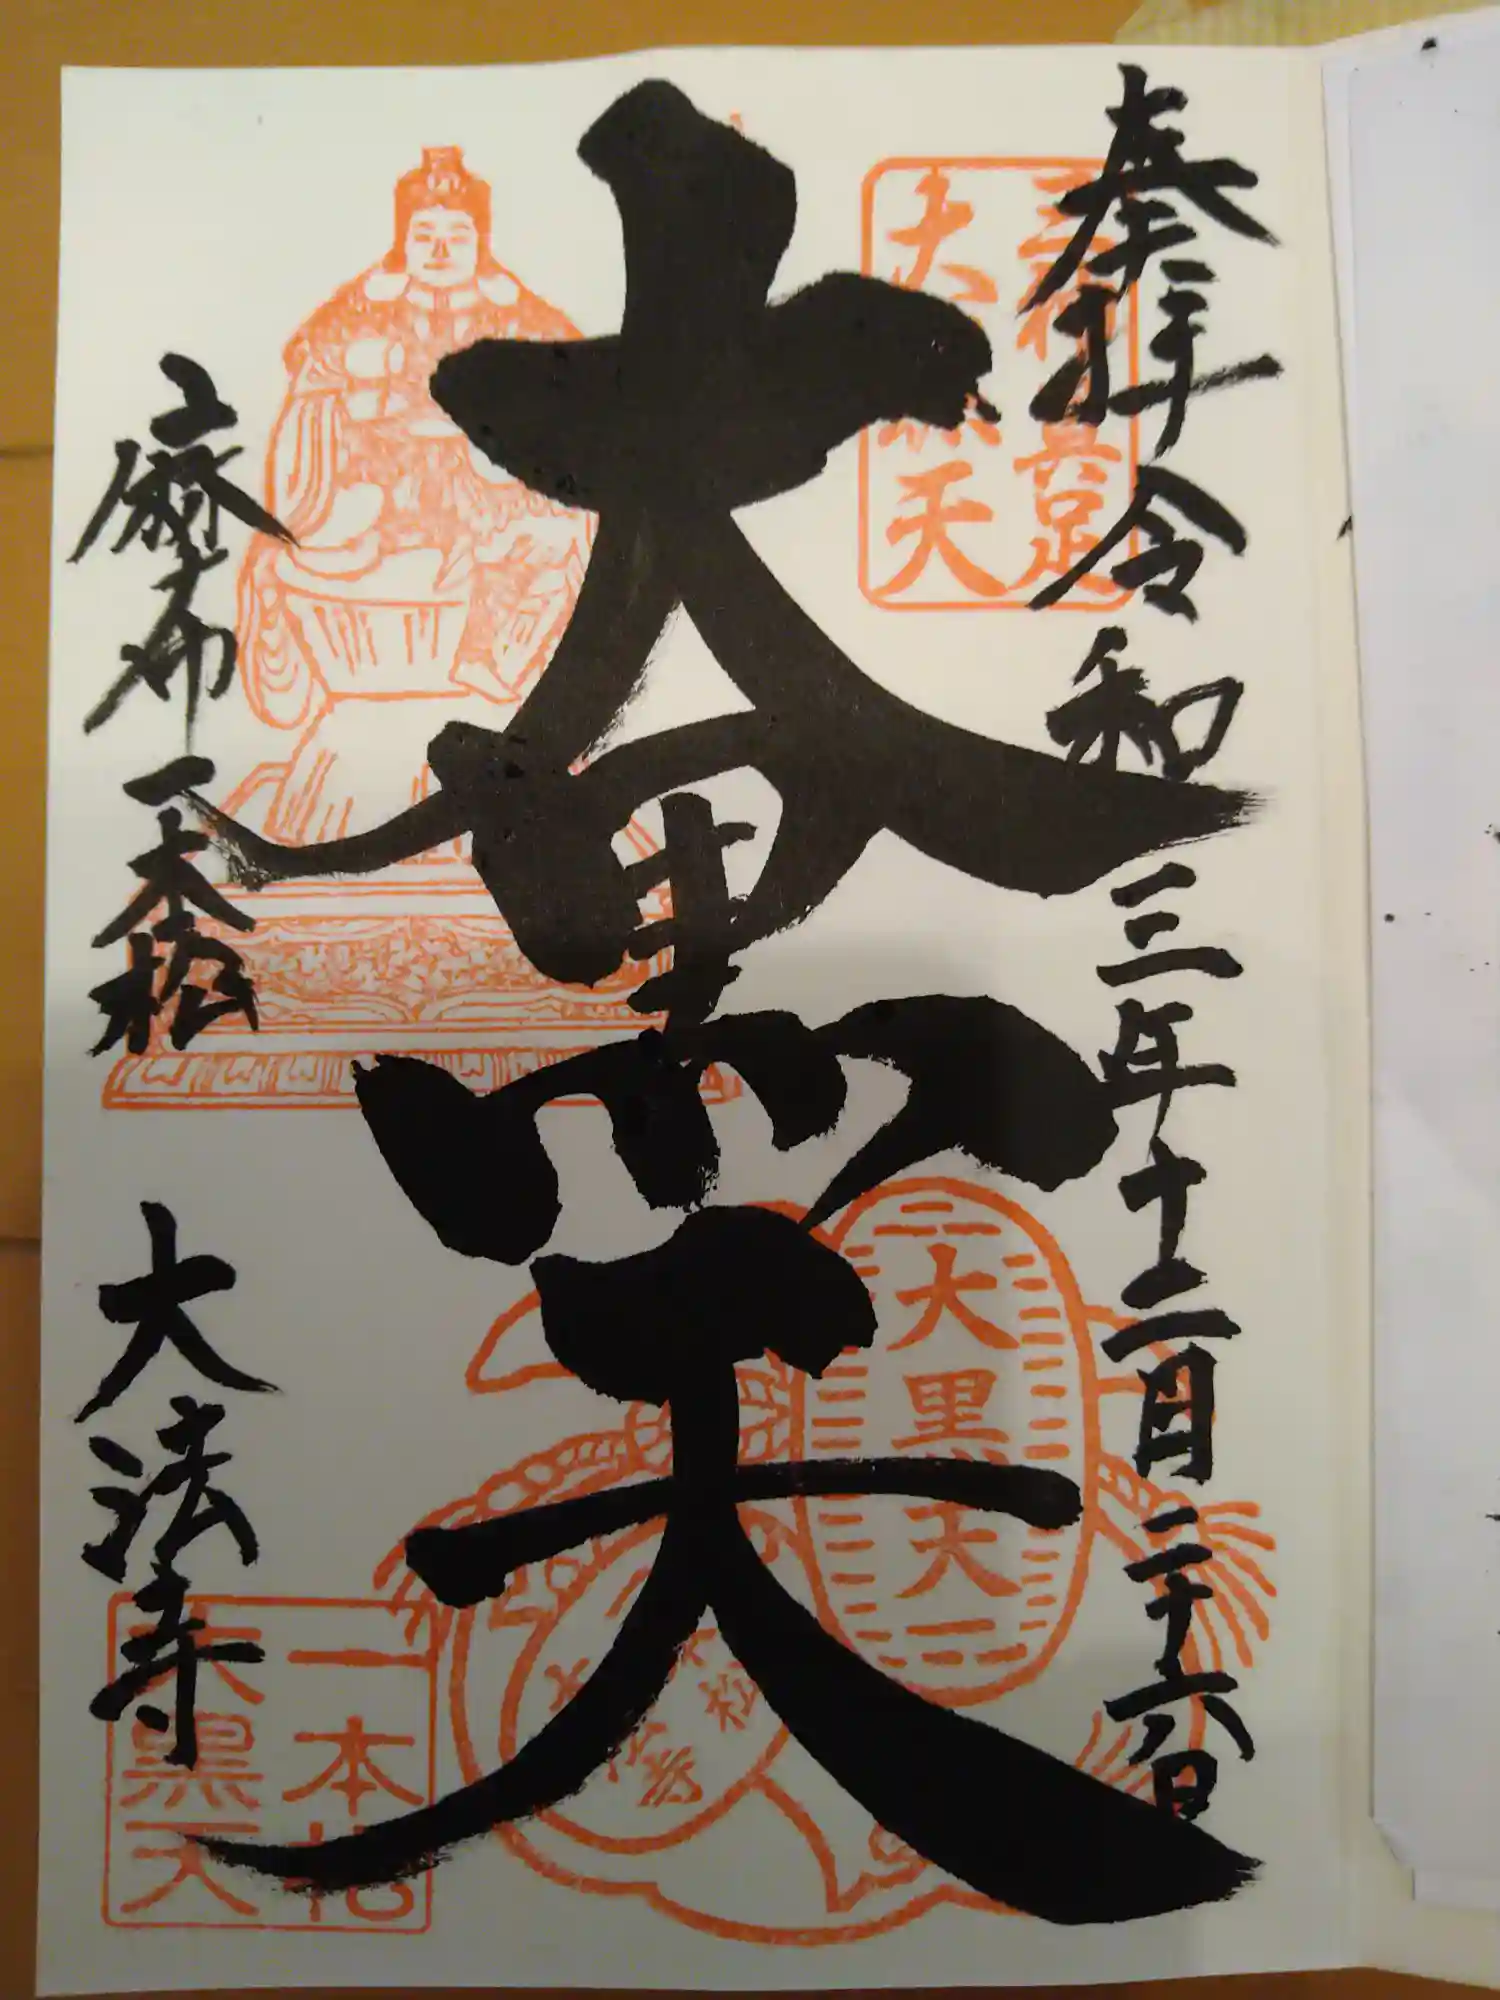 奉拝 令和三年十二月二十六日
大黒天
麻布一本松 大法寺
大黒天
一本松
大黒天